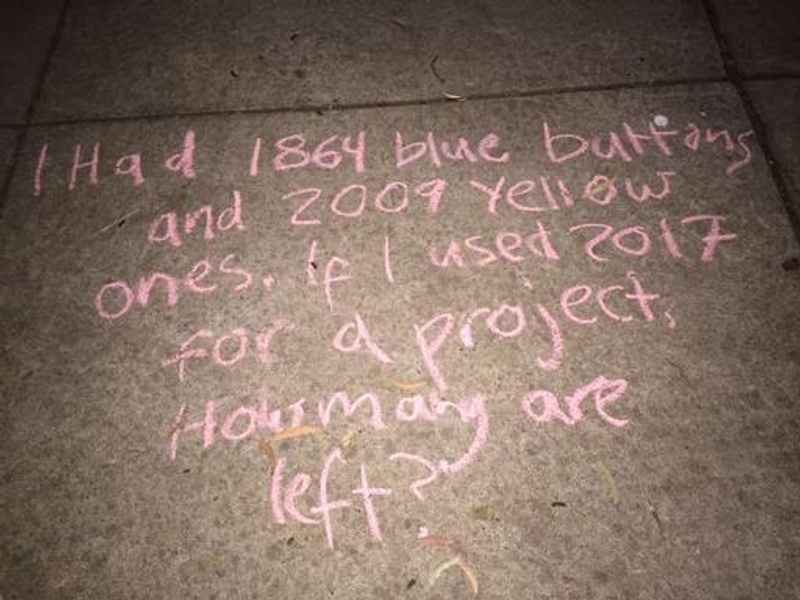 I Had 1864 blue buttons
and 2009 Yellow
ones. If I used 2017
for a project,
How many are
left?